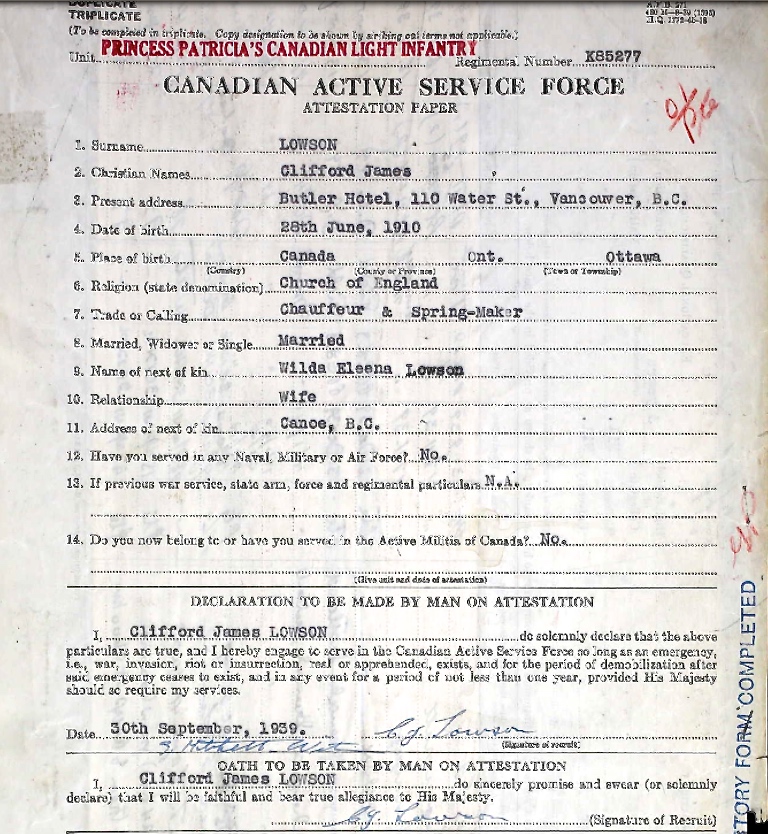 DUPLICATE
TRIPLICATE
(To be completed in triplicate. Copy designation to be shown by striking out terms not applicable.)
Unit PRINCESS PATRICIA'S CANADIAN LIGHT INFANTRY Regimental Number K85277
CANADIAN ACTIVE SERVICE FORCE
ATTESTATION PAPER
1. Surname LOWSON
2. Christian Names Clifford James
3. Present address Butler Hotel, 110 Water St., Vancouver, B.C.
4. Date of birth 28th June, 1910
5. Place of birth Canada Ont. Ottawa
(Country) (County or Province) (Town or Township)
6. Religion (state denomination) Church of England
7. Trade or Calling Chauffeur & Spring-Maker
8. Married, Widower or Single Married
9. Name of next of kin Wilda Eleena Lowson
10. Relationship Wife
11. Address of next of kin Canoe, B.C.
12. Have you served in any Naval, Military or Air Force? No.
13. If previous war service, state arm, force and regimental particulars N.A.
14. Do you now belong to or have you served in the Active Militia of Canada? No.
(Give unit and date of attestation)
DECLARATION TO BE MADE BY MAN ON ATTESTATION
I, Clifford James LOWSON do solemnly declare that the above
particulars are true, and I hereby engage to serve in the Canadian Active Service Force so long as an emergency,
i.e., war, invasion, riot or insurrection, real or apprehended, exists, and for the period of demobilization after
said emergency ceases to exist, and in any event for a period of not less than one year, provided His Majesty
should so require my services.
Date 30th September, 1939. C. J. Lowson
(Signature of recruit)
OATH TO BE TAKEN BY MAN ON ATTESTATION
I, Clifford James LOWSON do sincerely promise and swear (or solemnly
declare) that I will be faithful and bear true allegiance to His Majesty.
C. J. Lowson (Signature of Recruit)
TORY FORM COMPLETED